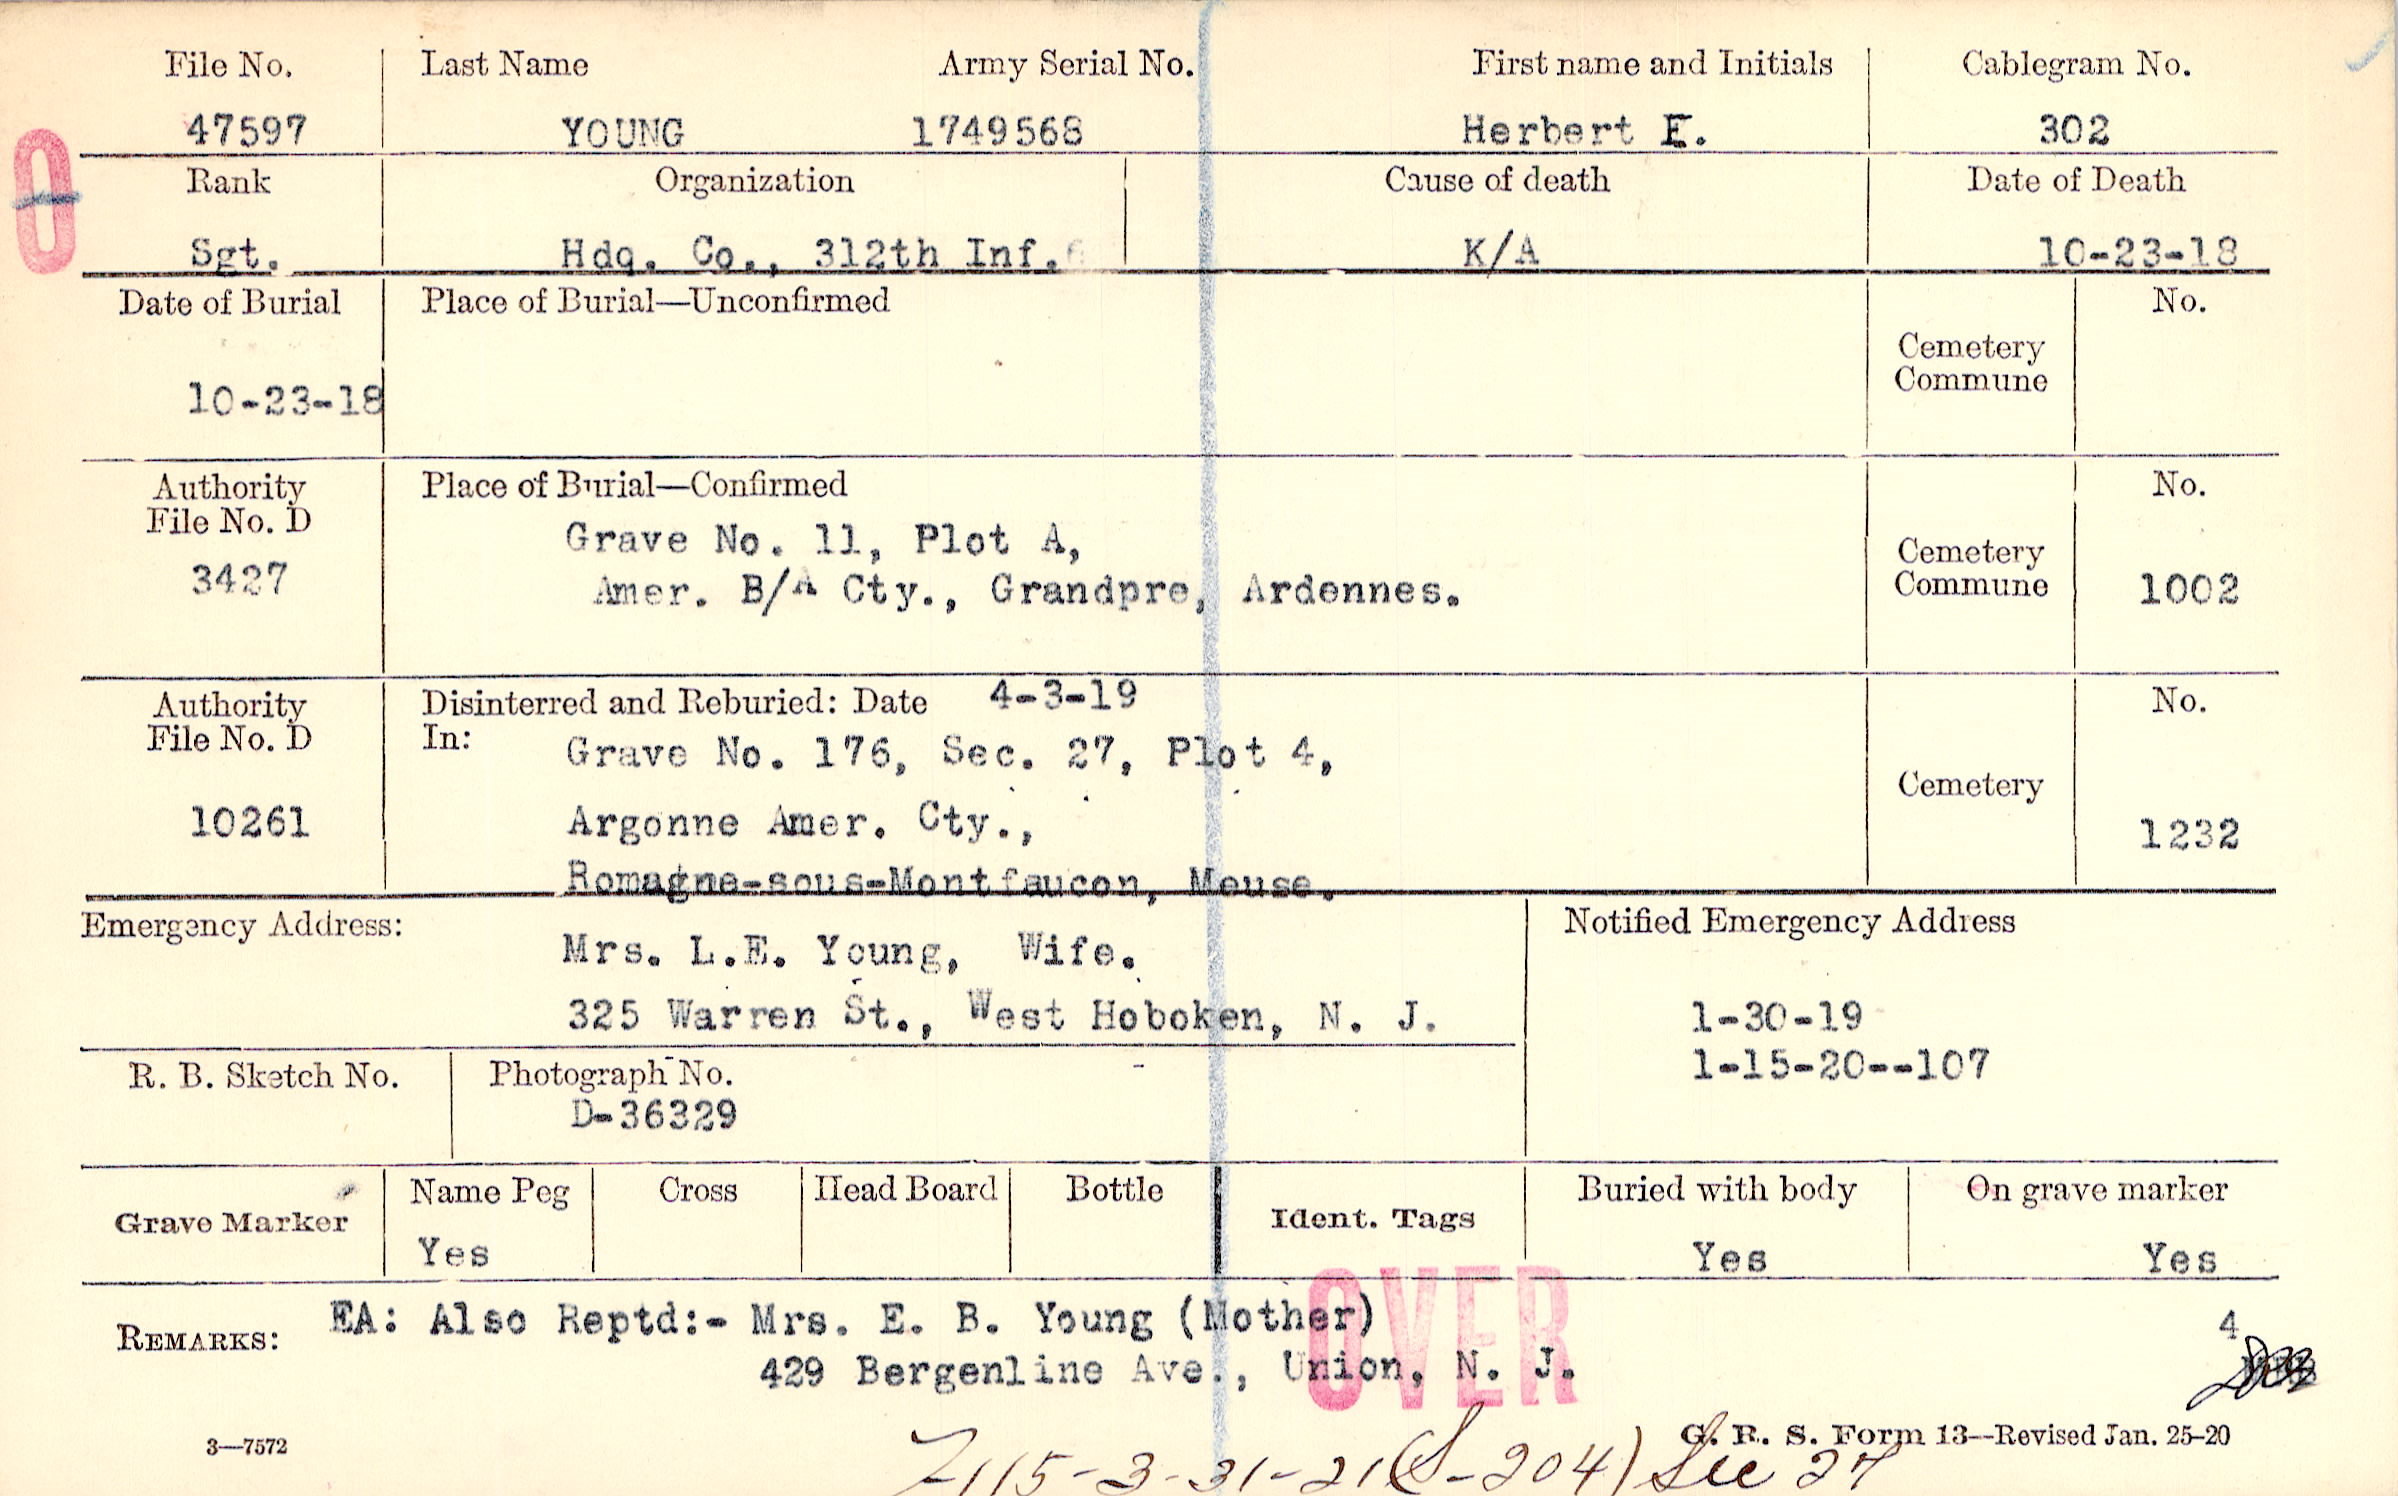 File No. Last Name Army Serial No. First name and Initials Cablegram No.
47597 YOUNG 1749568 Herbert E. 302
0
Rank Organization Cause of death Date of Death
Sgt. Hdq. Co., 312th Inf. K/A 10-23-18
Date of Burial Place of Burial—Unconfirmed No.
Cemetery
Commune
10-23-18
Authority Place of Burial—Confirmed No.
File No. D
Grave No. 11, Plot A,
Cemetery
3427 Amer. B/A Cty., Grandpre, Ardennes. Commune 1002
Authority Disinterred and Reburied: Date 4-3-19 No.
File No. D In: Grave No. 176, Sec. 27, Plot 4,
Cemetery
10261 Argonne Amer. Cty., 1232
Romagne-sous-Montfaucon, Meuse.
Emergency Address: Notified Emergency Address
Mrs. L.E. Young, Wife.
325 Warren St., West Hoboken, N. J. 1-30-19
1-15-20--107
R. B. Sketch No. Photograph No.
D-36329
Grave Marker Name Peg Cross Head Board Bottle Ident. Tags Buried with body On grave marker
Yes Yes Yes
OVER
REMARKS: EA: Also Reptd:- Mrs. E. B. Young (Mother) 4
429 Bergenline Ave., Union, N. J.
3—7572 G. R. S. Form 13—Revised Jan. 25-20
115-3-31-21 (S-204) Sec 27